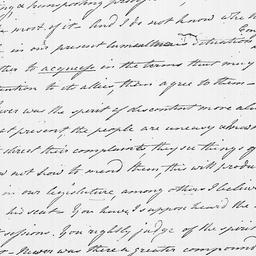 ing a
most of it. And I do not know whe
in our present situation
ther to acquiesce in the terms that may
tention to its allies than agree to them
ever was the spirit of discontent more al
at present the people are uneasy
direct their complaints they see things g
now not how to mend them, this will produ
in our legislature, among others I believe
his seat. You have, I suppose heard the
sessions. You rightly judge of the spirit
Never was there a greater compound